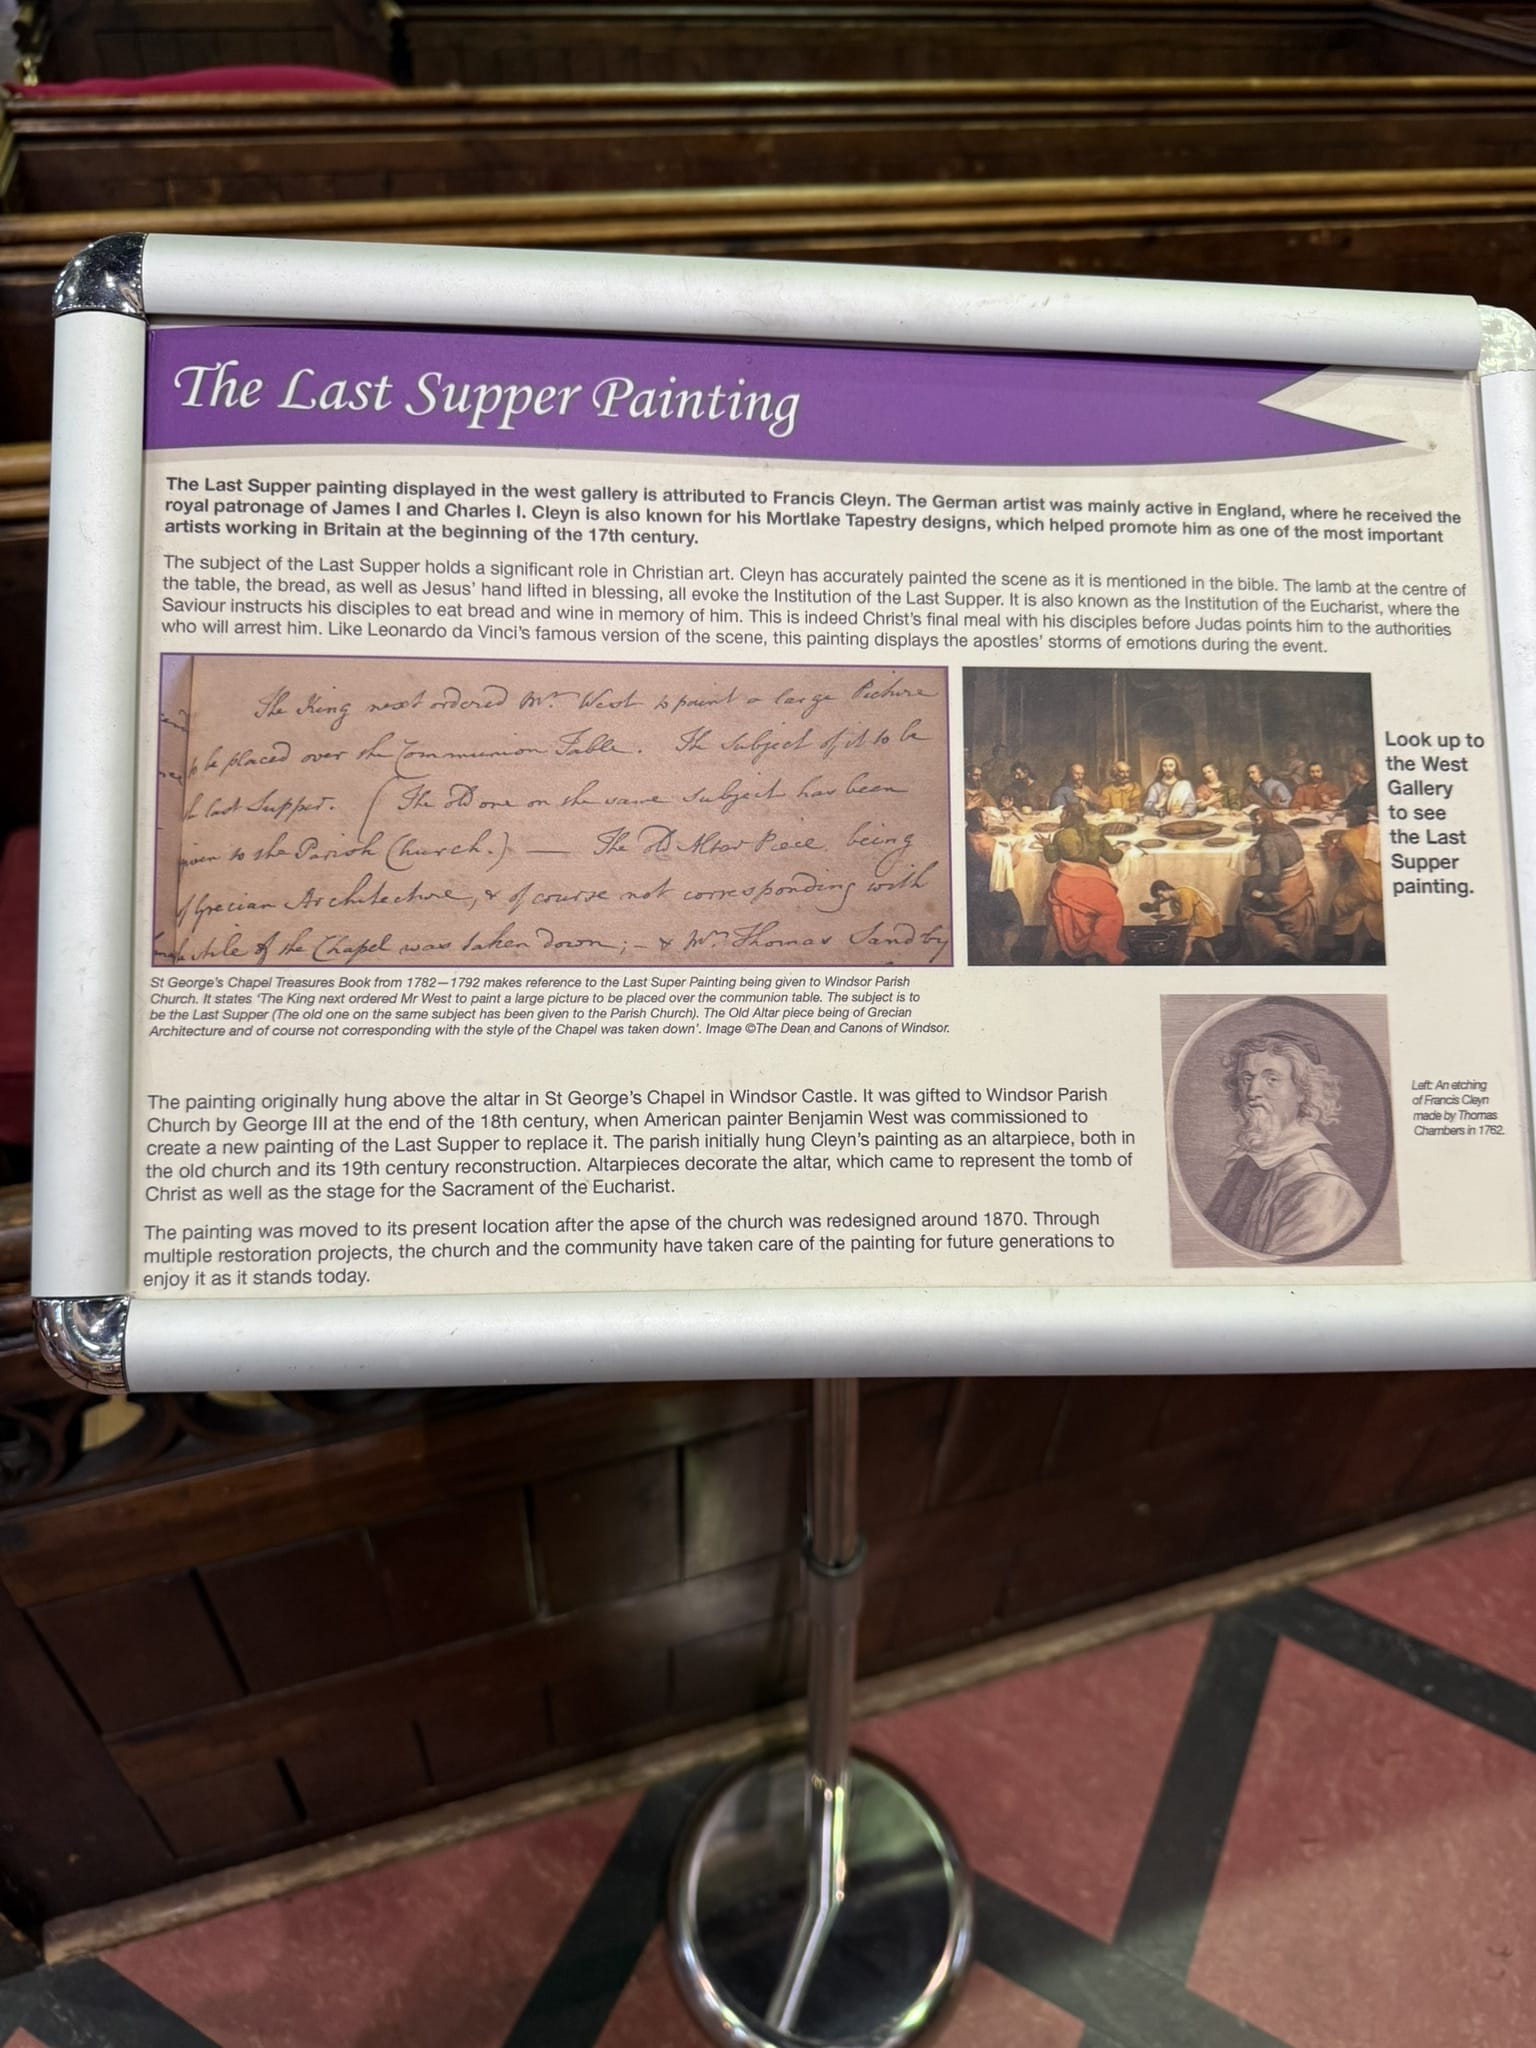 The Last Supper Painting
The Last Supper painting displayed in the west gallery is attributed to Francis Cleyn. The German artist was mainly active in England, where he received the
royal patronage of James I and Charles I. Cleyn is also known for his Mortlake Tapestry designs, which helped promote him as one of the most important
artists working in Britain at the beginning of the 17th century.
The subject of the Last Supper holds a significant role in Christian art. Cleyn has accurately painted the scene as it is mentioned in the bible. The lamb at the centre of
the table, the bread, as well as Jesus' hand lifted in blessing, all evoke the Institution of the Last Supper. It is also known as the Institution of the Eucharist, where the
Saviour instructs his disciples to eat bread and wine in memory of him. This is indeed Christ's final meal with his disciples before Judas points him to the authorities
who will arrest him. Like Leonardo da Vinci's famous version of the scene, this painting displays the apostles' storms of emotions during the event.
The King next ordered Mr. West to paint a large Picture
to be placed over the Communion Table. The Subject of it to be
the last Supper. (The old one on the same subject has been
given to the Parish Church.) — The Old Altar Piece being
of Grecian Architecture, & of course not corresponding with
stile of the Chapel was taken down; - & Mr. Thomas Sandby
Look up to
the West
Gallery
to see
the Last
Supper
painting.
St George's Chapel Treasures Book from 1782—1792 makes reference to the Last Super Painting being given to Windsor Parish
Church. It states 'The King next ordered Mr West to paint a large picture to be placed over the communion table. The subject is to
be the Last Supper (The old one on the same subject has been given to the Parish Church). The Old Altar piece being of Grecian
Architecture and of course not corresponding with the style of the Chapel was taken down'. Image ©The Dean and Canons of Windsor.
The painting originally hung above the altar in St George's Chapel in Windsor Castle. It was gifted to Windsor Parish
Church by George III at the end of the 18th century, when American painter Benjamin West was commissioned to
create a new painting of the Last Supper to replace it. The parish initially hung Cleyn's painting as an altarpiece, both in
the old church and its 19th century reconstruction. Altarpieces decorate the altar, which came to represent the tomb of
Christ as well as the stage for the Sacrament of the Eucharist.
The painting was moved to its present location after the apse of the church was redesigned around 1870. Through
multiple restoration projects, the church and the community have taken care of the painting for future generations to
enjoy it as it stands today.
Left: An etching
of Francis Cleyn
made by Thomas
Chambers in 1762.